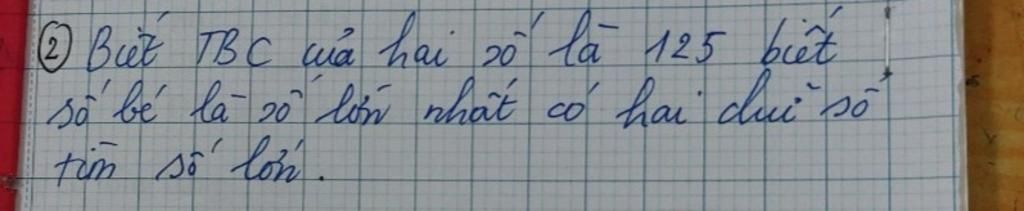 ② Biết TBC của hai số là 125 biết
số bé là số lớn nhất có hai chữ số
tìm số lớn.